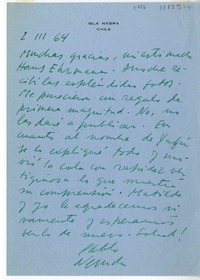 ISLA NEGRA
CHILE
2 III 64
Muchas gracias, mi estimado
Hans Ehrmann. Anoche re-
cibí las espléndidas fotos.
Me parecieron un regalo de
primera magnitud. No, no
las daré a publicar. En
cuanto al nombre de
se lo expliqué todo y mo-
vió la cola con rapidez ver-
tiginosa lo que muestra
su comprensión. Matilde
y yo le agradecemos vi-
vamente y esperamos
verlo de nuevo. Salud!
Pablo
Neruda